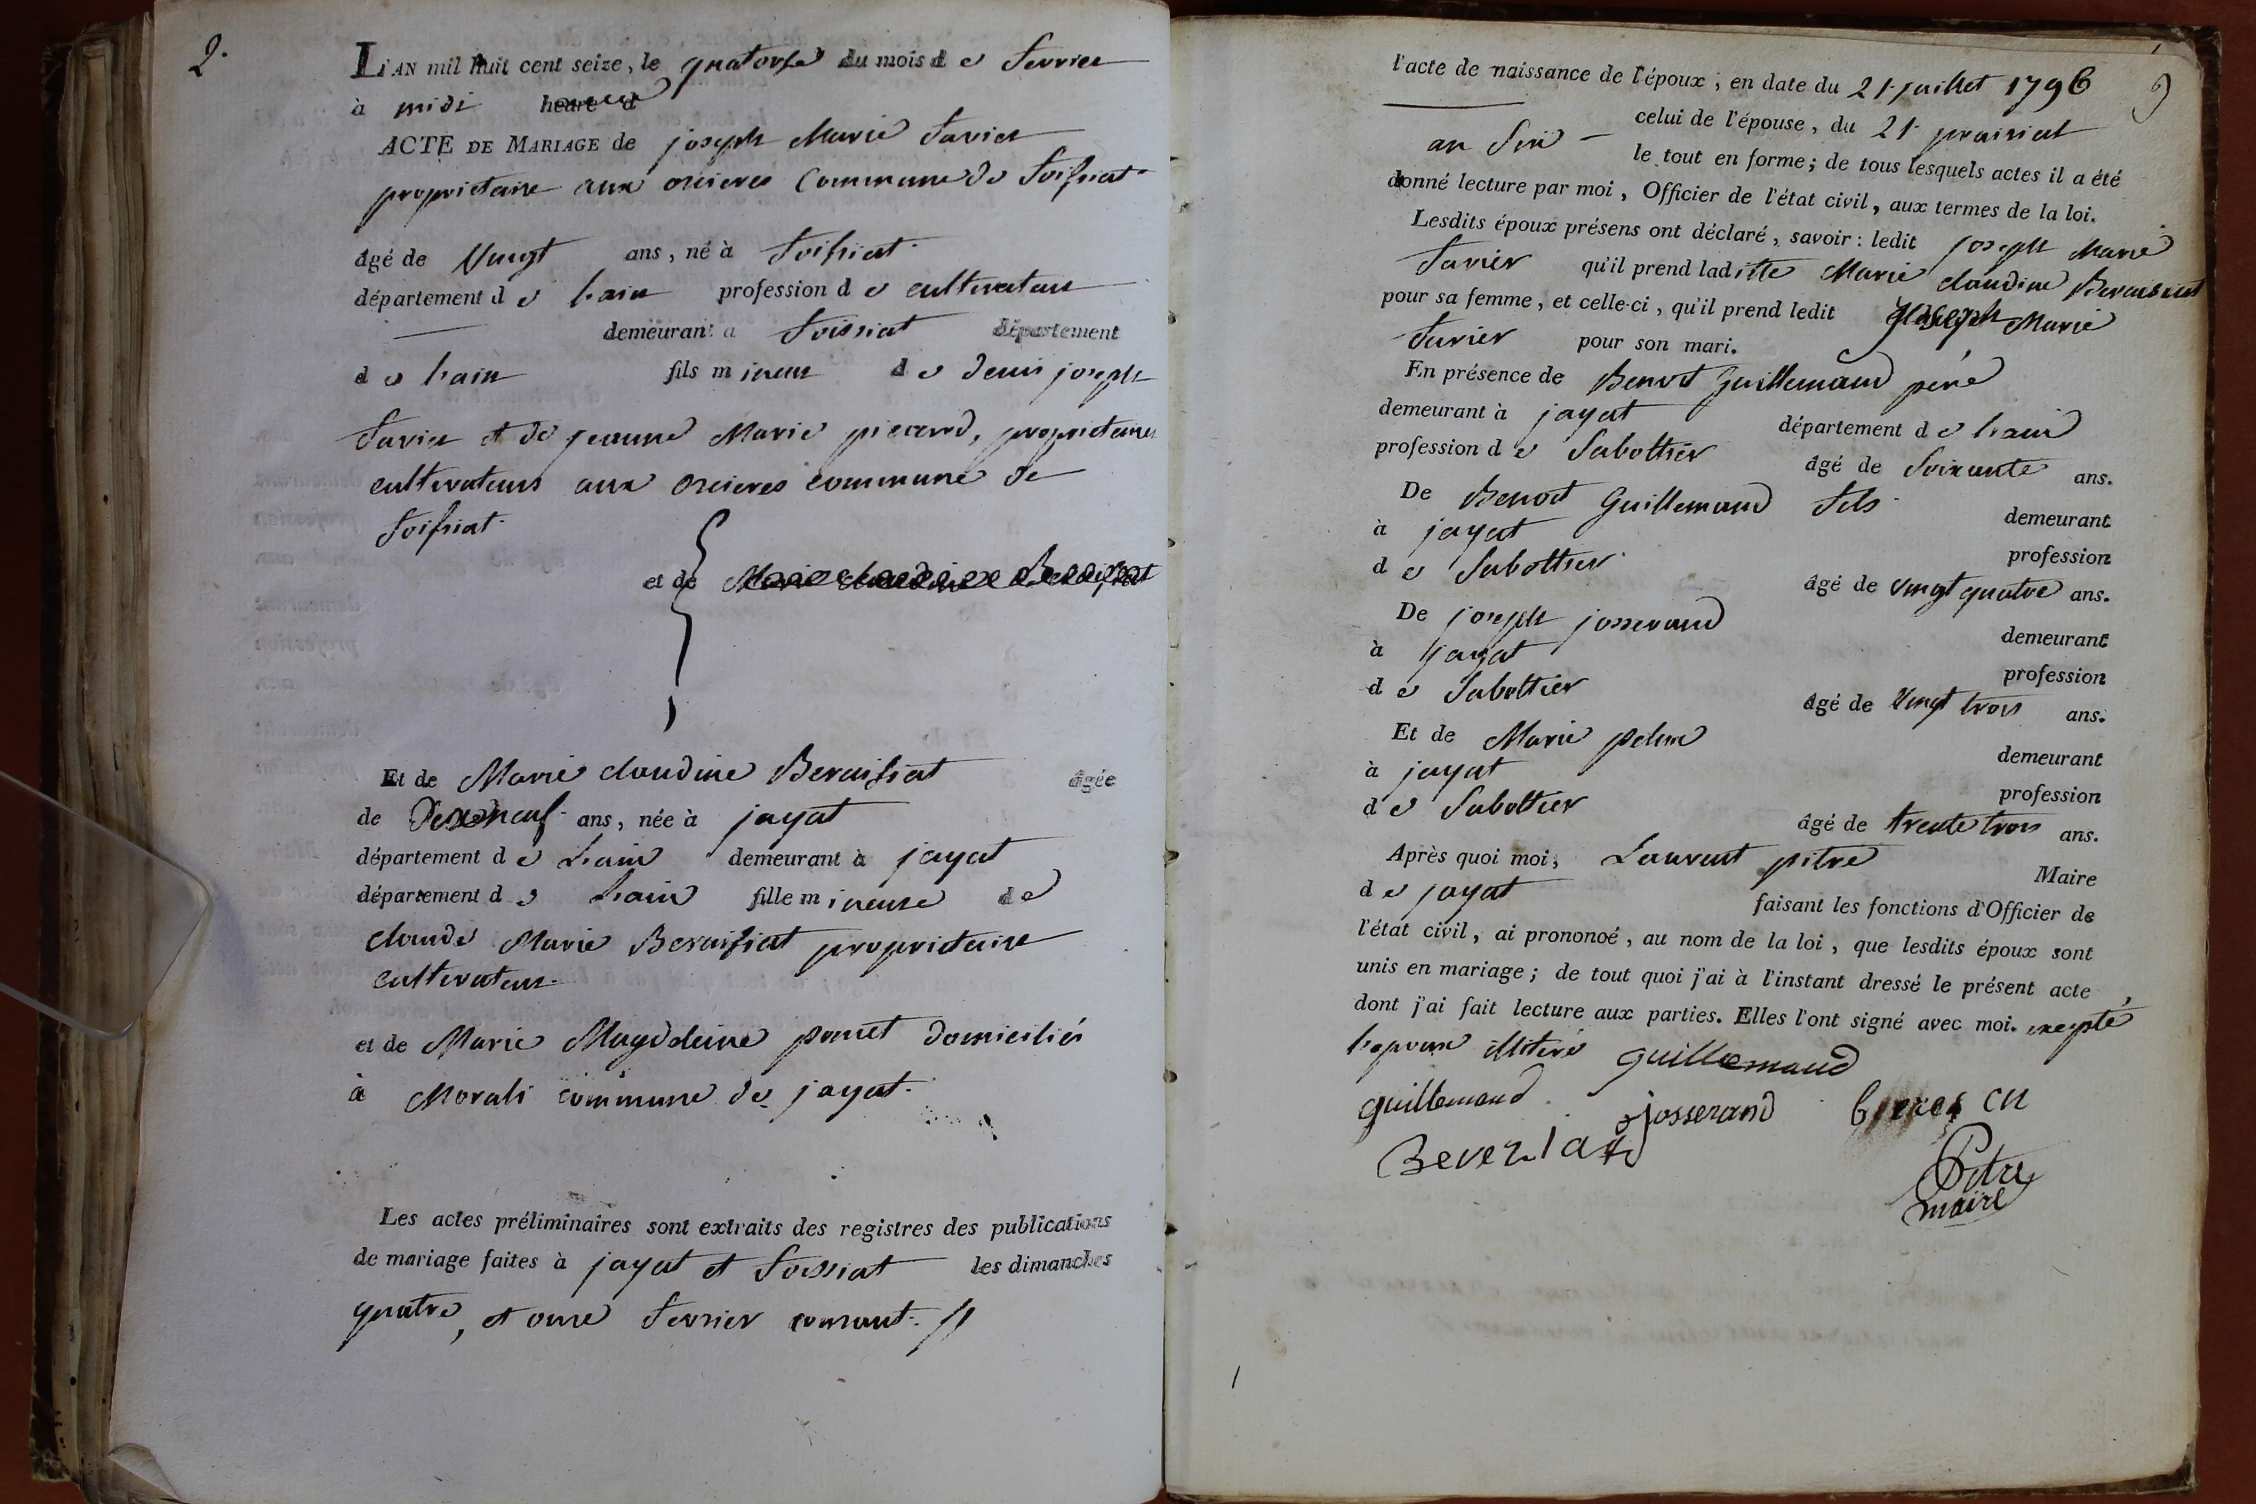 2.
L'AN mil huit cent seize, le quatorze du mois de fevrier
à midi heure d
ACTE DE MARIAGE de joseph Marie favier
proprietaire aux orcieres Commune de foissiat
âgé de vingt ans, né à foissiat
département de l'ain profession de cultivateur
demeurant à foissiat département
de l'ain fils mineur de denis joseph
favier et de jeanne Marie piccerod, proprietaires
cultivateurs aux orcieres commune de
foissiat
et de Marie claudine Beraissiat
Et de Marie claudine Beraissiat âgée
de Dixneuf ans, née à jayat
département de L'ain demeurant à jayat
département de L'ain fille mineure de
claude Marie Beraissiat proprietaire
cultivateur
et de Marie Magdeleine ponet domiciliés
à Morali commune de jayat.
Les actes préliminaires sont extraits des registres des publications
de mariage faites à jayat et foissiat les dimanches
quatre, et onze fevrier courant.
9
l'acte de naissance de l'époux, en date du 21 juillet 1796
celui de l'épouse, du 21 prairial
an le tout en forme; de tous lesquels actes il a été
donné lecture par moi, Officier de l'état civil, aux termes de la loi.
Lesdits époux présens ont déclaré, savoir: ledit joseph Marie
favier qu'il prend laditte Marie claudine Beraissiat
pour sa femme, et celle-ci, qu'il prend ledit joseph Marie
favier pour son mari.
En présence de Benoit Guillemaud pere
demeurant à jayat département de l'ain
profession de Sabottier âgé de soixante ans.
De Benoit Guillemaud fils demeurant
à jayat profession
de Sabottier âgé de vingt quatre ans.
De joseph josserand demeurant
à jayat profession
de Sabottier âgé de vingt trois ans.
Et de Marie demeurant
à jayat profession
de Sabottier âgé de trente trois ans.
Après quoi moi, Laurent pitre Maire
de jayat faisant les fonctions d'Officier de
l'état civil, ai prononcé, au nom de la loi, que lesdits époux sont
unis en mariage; de tout quoi j'ai à l'instant dressé le présent acte
dont j'ai fait lecture aux parties. Elles l'ont signé avec moi. excepté
l'epouse illiteré guillemaud
guillemaud josserand
Pitre
maire